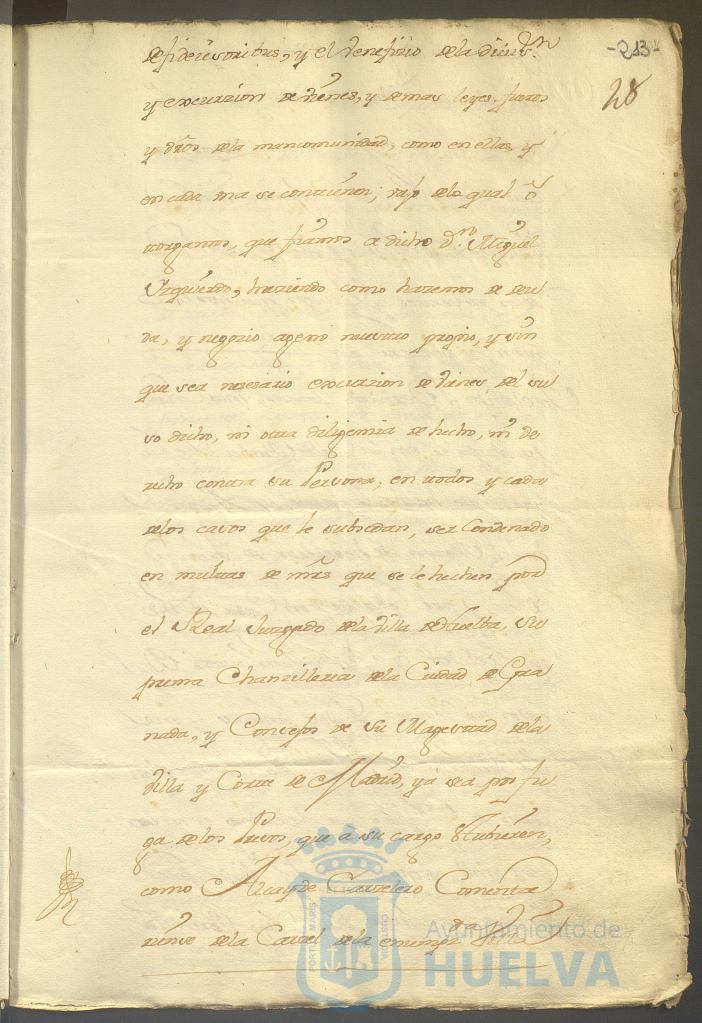 -213-
28
de fideiusoribus, y el Venefizio de la Diuis.on
y excurzion de vienes, y demas leyes, fueros
y dros de la mancomunidad, como en ellas, y
en cada una se contienen; vajo de lo qual o
torgamos, que fiamos a dicho Dn. Miguel
Yzquierdo, haziendo como hazemos de deu
da, y negozio ageno nuestro propio, y sin
que sea nesesario excurzion de vienes del su
so dicho, ni otra diligencia de hecho, ni de
recho contra su Persona, en todos y cada
de los casos que le subsedan, ser Condenado
en multas de mrs que se le hechen por
el Real Juzgado de la Villa de Huelba, Su
prema Chanzilleria de la Ciudad de Gra
nada, y Consejos de Su Magestad de la
Villa y Corte de Madrid, ya sea por fu
ga de los Presos, que a su cargo Hubieren,
como Alcayde Carzelero Comenta
riense de la Carsel de la
Ayuntamiento de
HUELVA